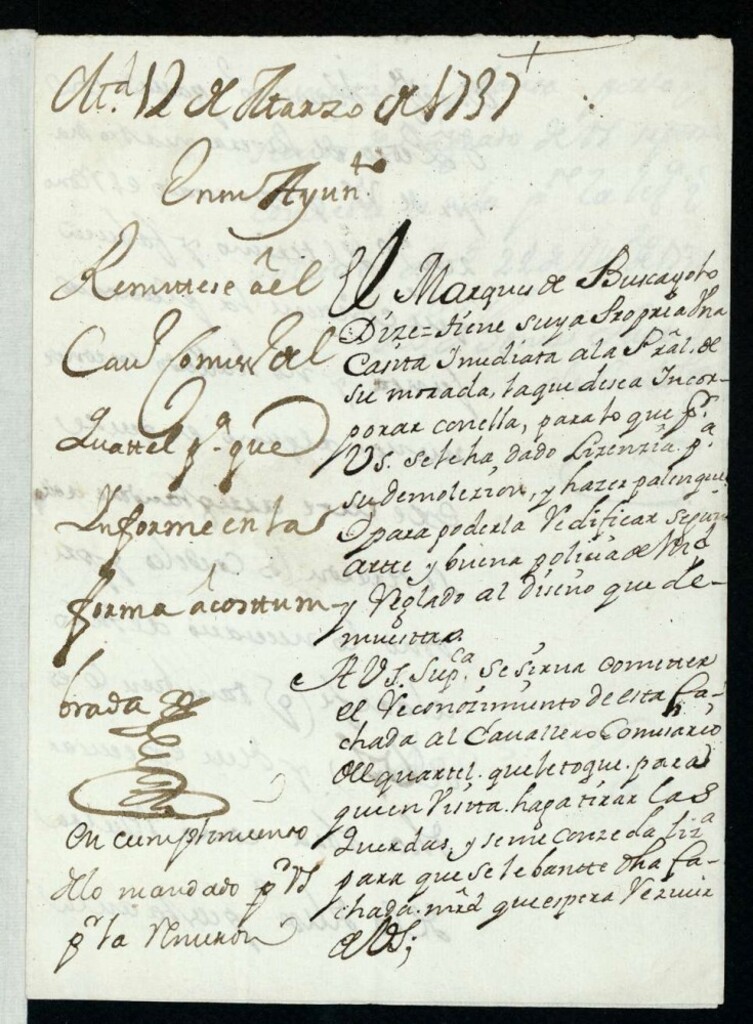 Md. 12 de Marzo de 1737
En su Ayunto.
Remitese a el
Cavo. Comiso. del
Quartel pa. que
Informe en la
forma acosttum-
brada
en cumplimiento
de lo mandado pr. VS
pr. la
El Marques de Buscayolo
Dize = tiene suya Propria Una
Casita Inmediata a la Pral. de
su morada, la que desea Incor-
porar con ella, para lo que pr.
VS. se le ha dado Lizenzia pa.
su demolezion, y hazer palenque
para poderla Redificar segun
artte y buena polizia de Md.
y Reglado al diseño que de-
muestra.
A VS. Supca. se sirva cometer
el Reconozimiento de esta fa-
chada al Cavallero Comisario
del quartel que le toque para
que en Vistta haga tirar las
Querdas, y se me conzeda liza.
para que se lebantte dha fa-
chada. mrd que espera Rezivir
de VS;